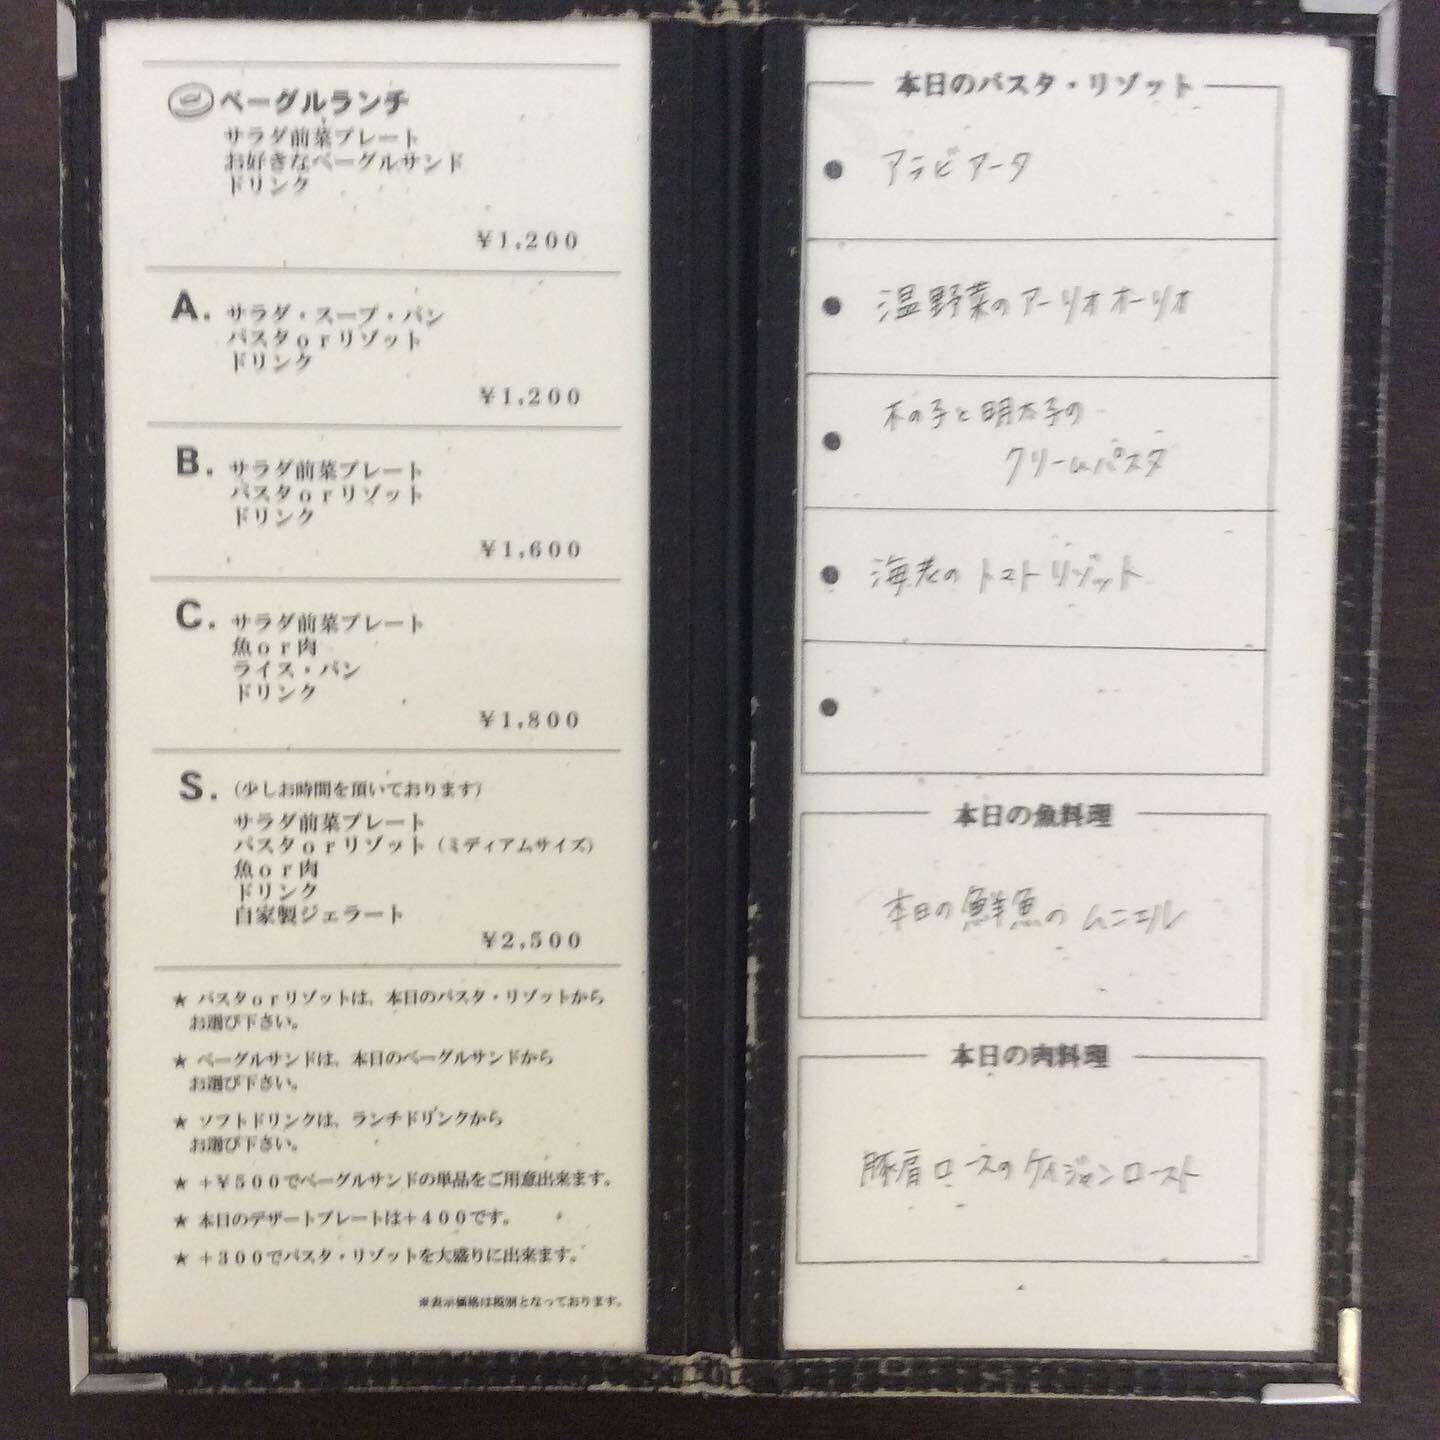 ベーグルランチ
サラダ前菜プレート
お好きなベーグルサンド
ドリンク
¥1,200
A. サラダ・スープ・パン
パスタorリゾット
ドリンク
¥1,200
B. サラダ前菜プレート
パスタorリゾット
ドリンク
¥1,600
C. サラダ前菜プレート
魚or肉
ライス・パン
ドリンク
¥1,800
S. (少しお時間を頂いております)
サラダ前菜プレート
パスタorリゾット(ミディアムサイズ)
魚or肉
ドリンク
自家製ジェラート
¥2,500
★ パスタorリゾットは、本日のパスタ・リゾットから
お選び下さい。
★ ベーグルサンドは、本日のベーグルサンドから
お選び下さい。
★ ソフトドリンクは、ランチドリンクから
お選び下さい。
★ +¥500でベーグルサンドの単品をご用意出来ます。
★ 本日のデザートプレートは+400です。
★ +300でパスタ・リゾットを大盛りに出来ます。
※表示価格は税別となっております。
本日のパスタ・リゾット
● アラビアータ
● 温野菜のアーリオオーリオ
● 木の子と明太子の
クリームパスタ
● 海老のトマトリゾット
●
本日の魚料理
本日の鮮魚のムニエル
本日の肉料理
豚肩ロースのケイジャンロースト